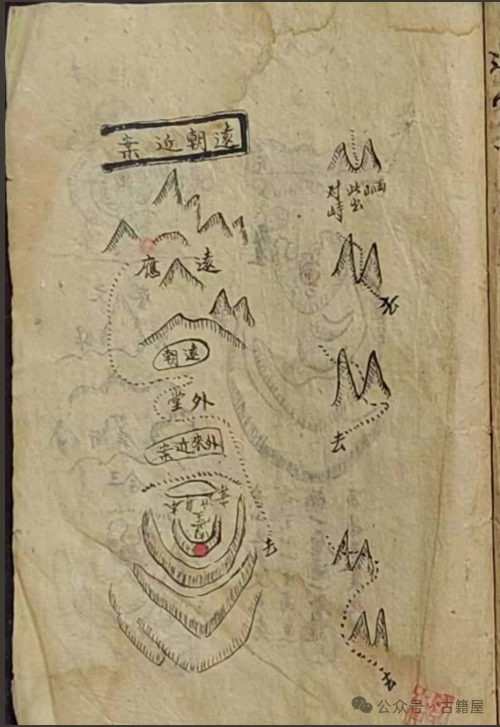 遠朝近案
此出
对峙
去
去
去
遠應
遠朝
外堂
外來近案
去
公众号·古籍屋